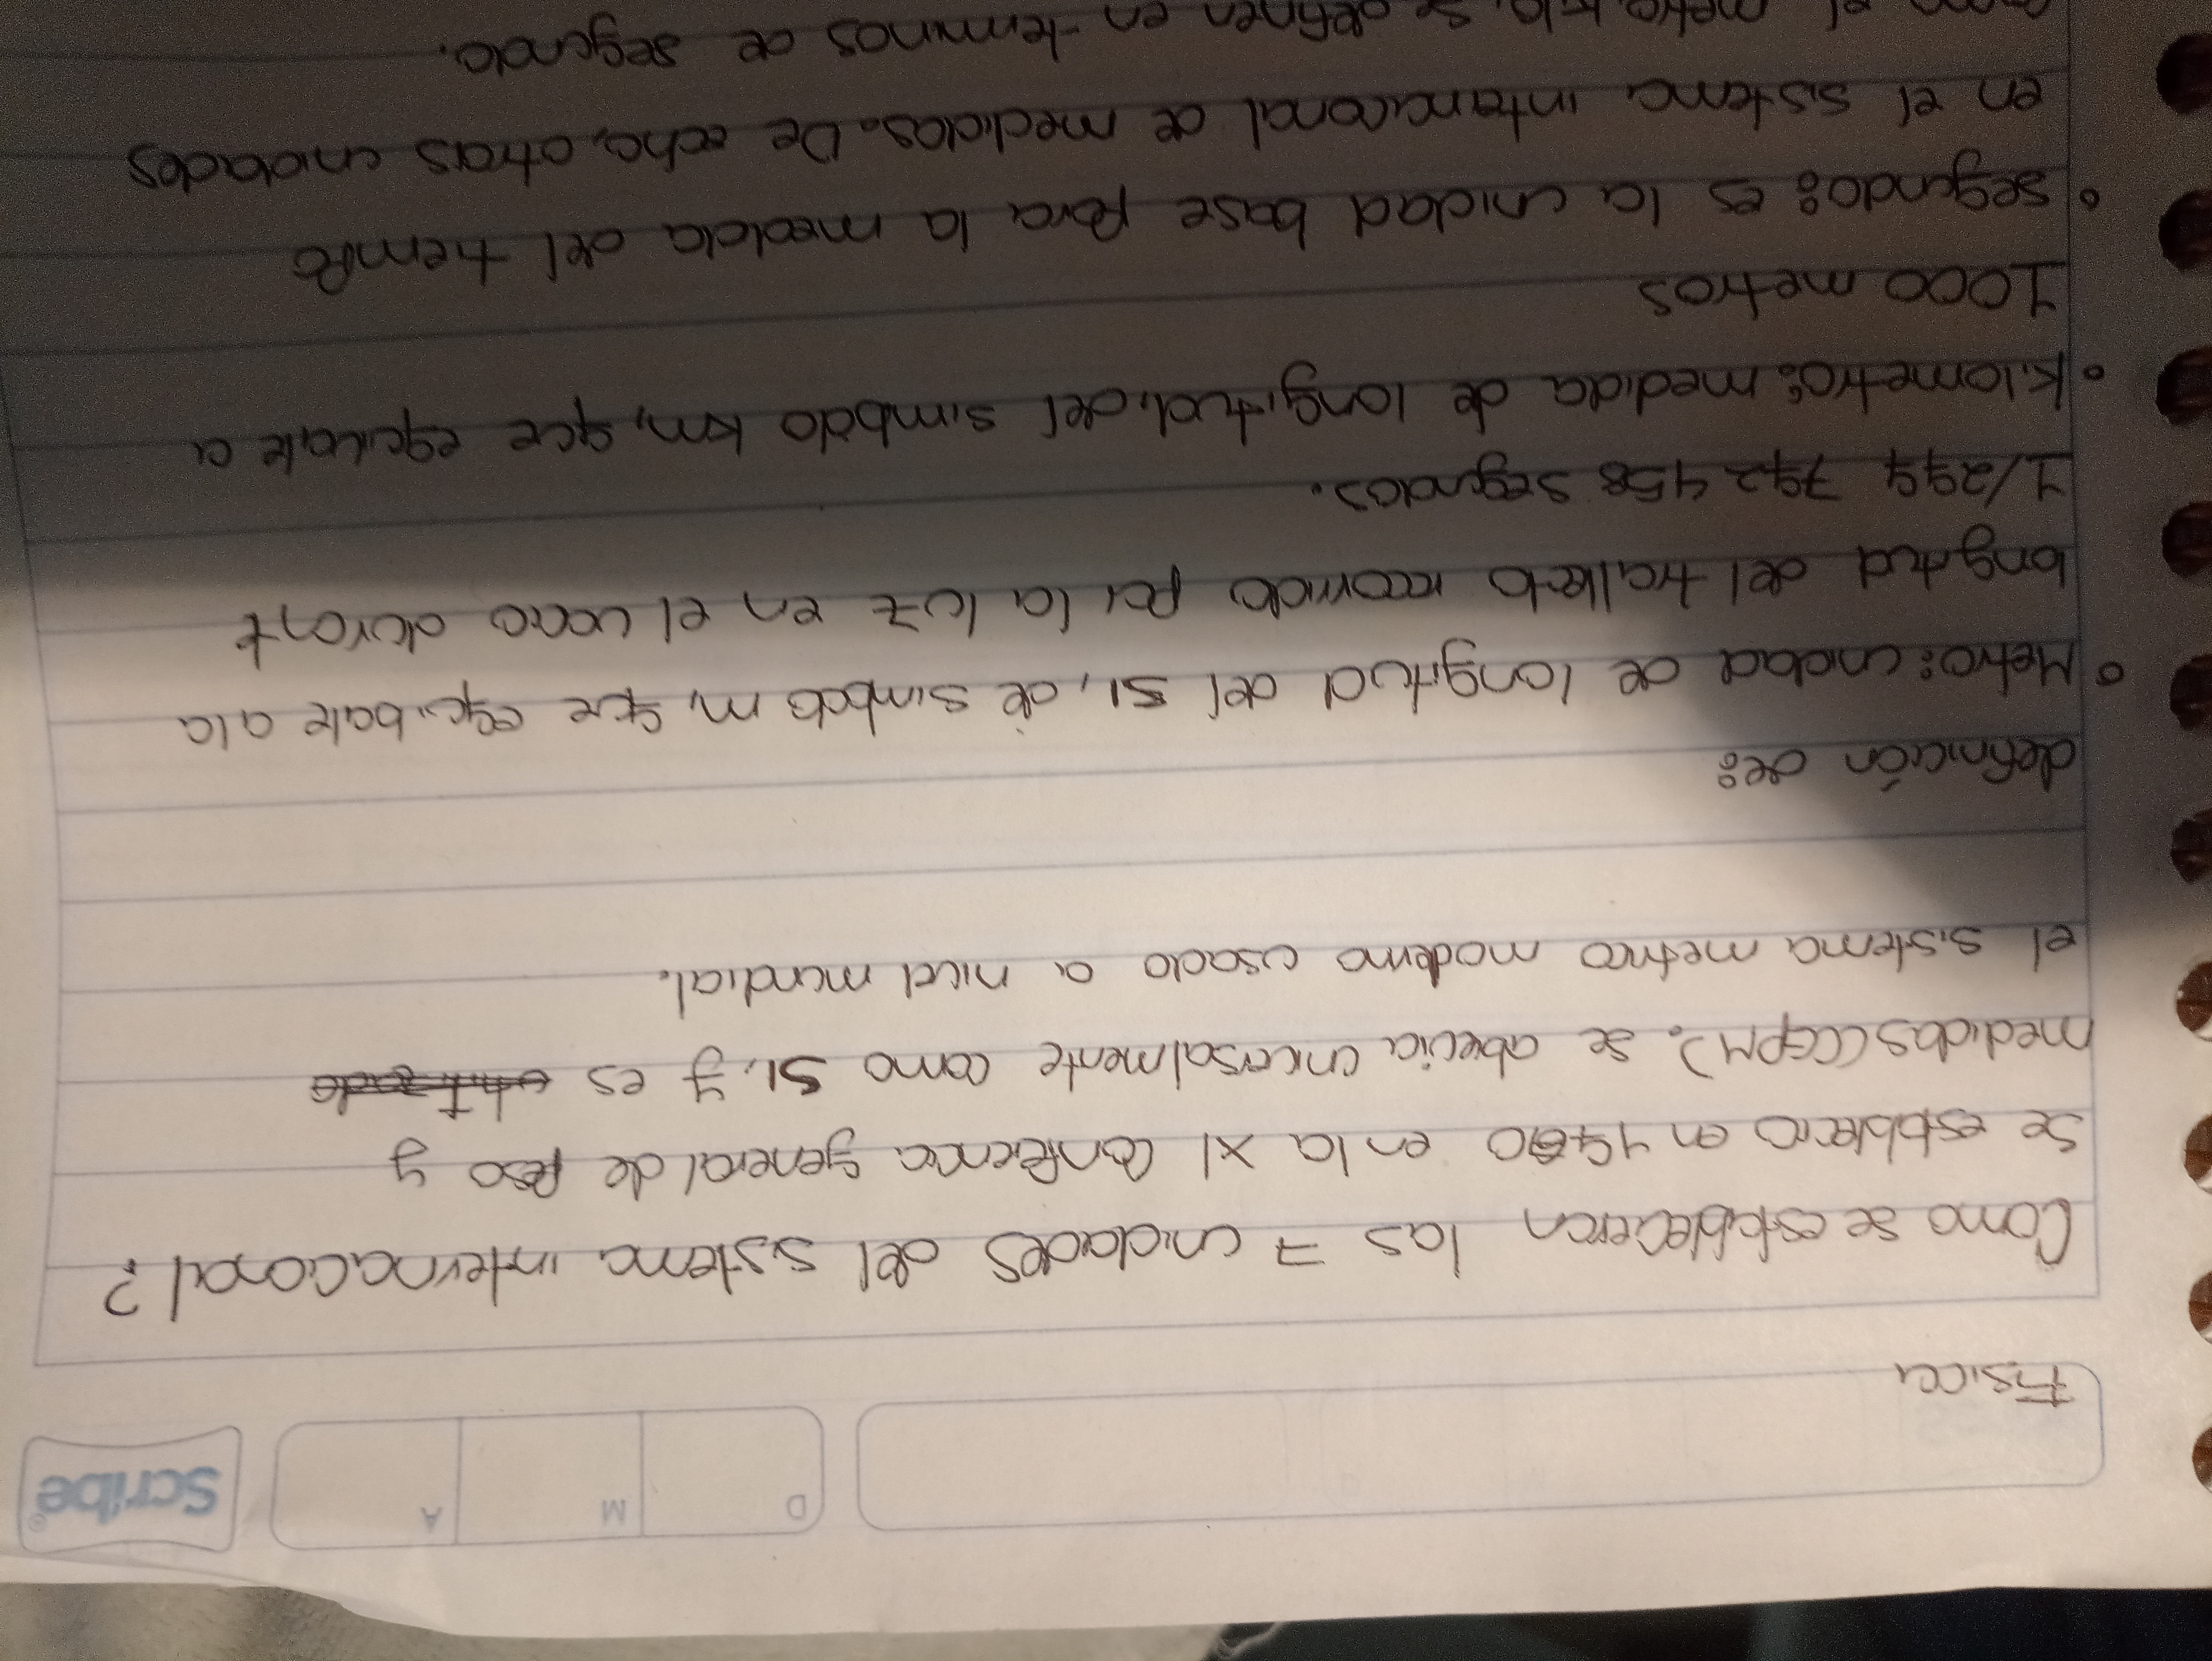 Scribe
D M A
Fisica
Como se establecieron las 7 unidades del sistema internacional?
Se establecio en 1960 en la XI Conferencia general de peso y
medidas (CGPM). Se abrevia universalmente como SI, y es
el sistema metrico moderno usado a nivel mundial.
definición de:
Metro: unidad de longitud del SI, de simbolo m, que equibale a la
longitud del trallecto recorrido por la luz en el vacio durant
1/299 792 458 segundos.
Kilometro: medida de longitud, del simbolo km, que equivale a
1000 metros
segundo: es la unidad base para la medida del tiempo
en el sistema internacional de medidas. De echo, otras unidades
como el metro, kilo, se definen en terminos de segundo.